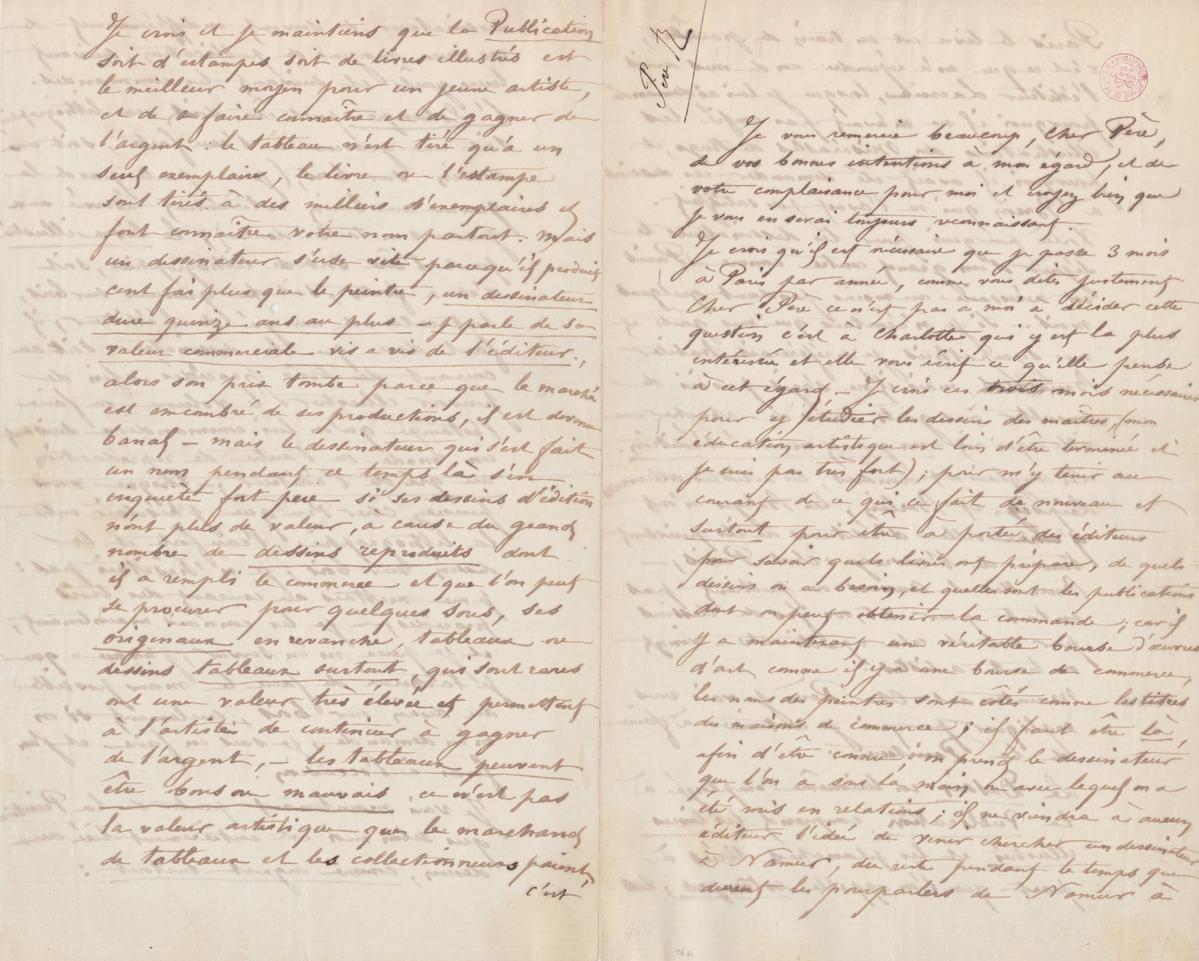 Je crois et je maintiens que la Publication
soit d'estampes soit de livres illustrés est
le meilleur moyen pour un jeune artiste,
et de se faire connaître et de gagner de
l'argent : le tableau n'est tiré qu'à un
seul exemplaire, le livre ou l'estampe
sont tirés à des milliers d'exemplaires et
font connaître votre nom partout. Mais
un dessinateur s'use vite parcequ'il produit
cent fois plus que le peintre, un dessinateur
dure quinze ans au plus – je parle de sa
valeur commerciale vis a vis de l'éditeur,
alors son prix tombe parce que le marché
est encombré de ses productions, il est devenu
banal – mais le dessinateur qui s'est fait
un nom pendant ce temps là s'en
inquiète fort peu si ses dessins d'édition
n'ont plus de valeur, à cause du grand
nombre de dessins reproduits dont
il a rempli le commerce et que l'on peut
se procurer pour quelques sous, ses
originaux en revanche, tableaux ou
dessins tableaux surtout, qui sont rares
ont une valeur très élevée et permettent
à l'artiste de continuer à gagner
de l'argent, – les tableaux peuvent
être bons ou mauvais ce n'est pas
la valeur artistique que le marchand
de tableaux et les collectionneurs paient,
c'est
Je vous remercie beaucoup, Cher Père,
de vos bonnes intentions à mon égard, et de
votre complaisance pour moi et croyez bien que
je vous en serai toujours reconnaissant.
Je crois qu'il est nécessaire que je passe 3 mois
à Paris par année, comme vous dites justement
Cher Père ce n'est pas à moi à décider cette
question c'est à Charlotte qui y est la plus
intéressée et elle vous écrit ce qu'elle pense
à cet égard. – Je crois ces trois mois nécessaires
pour y étudier les dessins des maîtres, (mon
éducation artistique est loin d'être terminée et
je suis pas très fort) ; pour m'y tenir au
courant de ce qui ce fait de nouveau et
surtout pour être à portée des éditeurs
pour savoir quels livres ont prépare, de quels
dessins on a besoin, et quelles sont les publications
dont on peut obtenir la commande ; car il
y a maintenant une véritable bourse d'œuvres
d'art comme il y a une bourse de commerce,
les noms des peintres sont cotés comme les titres
des maisons de commerce ; il faut être là,
afin d'être connu, on prend le dessinateur
que l'on a sous la main ou avec lequel on a
été mis en relations ; il ne viendra à aucun
éditeur l'idée de venir chercher un dessinateur
à Namur, du reste pendant le temps que
durent les pourparlers de Namur à